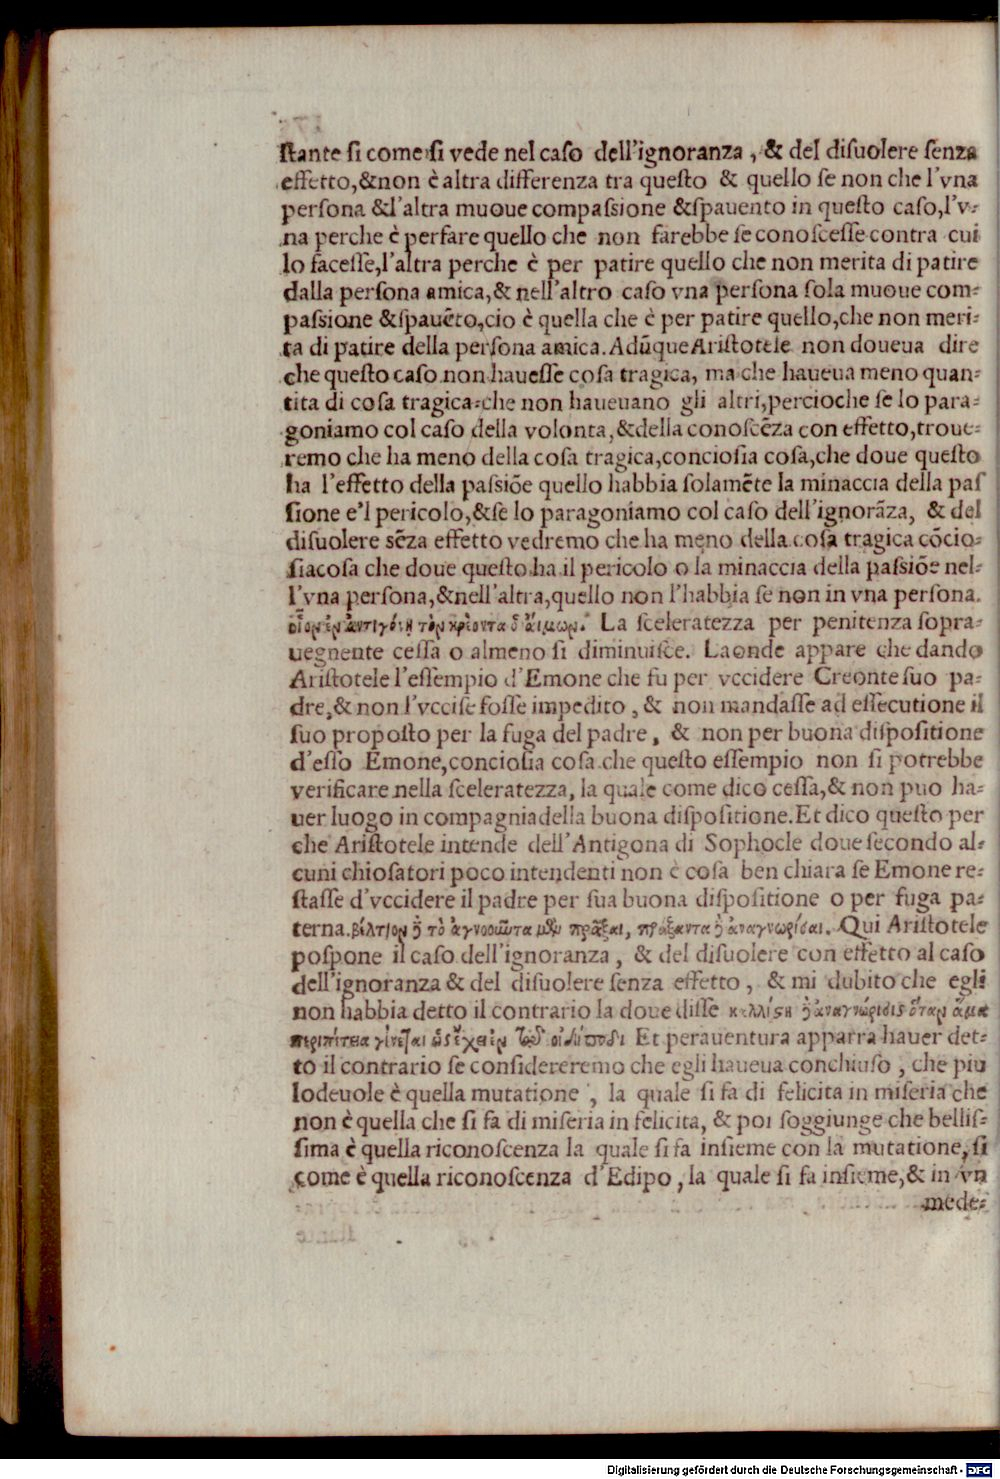 ſtante ſi come ſi vede nel caſo dell'ignoranza, & del diſuolere ſenza
effetto,&non è altra differenza tra queſto & quello ſe non che l'vna
perſona &l'altra muoue compaſsione &ſpauento in queſto caſo,l'v-
na perche è perfare quello che non farebbe ſe conoſceſſe contra cui
lo faceſſe,l'altra perche è per patire quello che non merita di patire
dalla perſona amica,& nell'altro caſo vna perſona ſola muoue com-
paſsione &ſpauẽto,cio è quella che è per patire quello,che non meri-
ta di patire della perſona amica. Adũque Ariſtotele non doueua dire
che queſto caſo non haueſſe coſa tragica, ma che haueua meno quan-
tita di coſa tragica-che non haueuano gli altri,percioche ſe lo para-
goniamo col caſo della volonta,&della conoſcẽza con effetto,troue-
remo che ha meno della coſa tragica,concioſia coſa,che doue queſto
ha l'effetto della paſsiõe quello habbia ſolamẽte la minaccia della paſ
ſione e'l pericolo,&ſe lo paragoniamo col caſo dell'ignorãza, & del
diſuolere sẽza effetto vedremo che ha meno della coſa tragica cõcio-
ſiacoſa che doue queſto ha il pericolo o la minaccia della paſsiõe nel-
l'vna perſona,&nell'altra,quello non l'habbia ſe non in vna perſona.
οἷον ἐν ἀντιγόνῃ τὸν κρέοντα ὁ αἵμων. La ſceleratezza per penitenza ſopra-
uegnente ceſſa o almeno ſi diminuiſce. Laonde appare che dando
Ariſtotele l'eſſempio d'Emone che fu per vccidere Creonte ſuo pa-
dre,& non l'vcciſe foſſe impedito, & non mandaſſe ad eſſecutione il
ſuo propoſto per la fuga del padre, & non per buona diſpoſitione
d'eſſo Emone,concioſia coſa che queſto eſſempio non ſi potrebbe
verificare nella ſceleratezza, la quale come dico ceſſa,& non puo ha-
uer luogo in compagnia della buona diſpoſitione.Et dico queſto per
che Ariſtotele intende dell'Antigona di Sophocle doue ſecondo al-
cuni chioſatori poco intendenti non è coſa ben chiara ſe Emone re-
ſtaſſe d'vccidere il padre per ſua buona diſpoſitione o per fuga pa-
terna.βέλτιον ἢ τὸ ἀγνοοῦντα μὲν πρᾶξαι, πράξαντα ἢ ἀναγνωρίσαι. Qui Ariſtotele
poſpone il caſo dell'ignoranza, & del diſuolere con effetto al caſo
dell'ignoranza & del diſuolere ſenza effetto, & mi dubito che egli
non habbia detto il contrario la doue diſſe καλλίστη ἢ ἀναγνώρισις ὅταν ἅμα
περιπέτεια γίνεται ὡς ἔχει ἐν τῷ οἰδίποδι Et perauentura apparra hauer det-
to il contrario ſe conſidereremo che egli haueua conchiuſo, che piu
lodeuole è quella mutatione, la quale ſi fa di felicita in miſeria che
non è quella che ſi fa di miſeria in felicita, & poi ſoggiunge che belliſ-
ſima è quella riconoſcenza la quale ſi fa inſieme con la mutatione, ſi
come è quella riconoſcenza d'Edipo, la quale ſi fa inſieme,& in vn
mede-
Digitalisierung gefördert durch die Deutsche Forschungsgemeinschaft - DFG